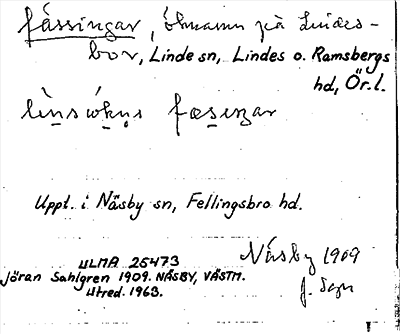 fässingar, öknamn på Lindes-
bor, Linde sn, Lindes o. Ramsbergs
hd, Ör.l.
Uppt. i Näsby sn, Fellingsbro hd.
ULMA 25473
Jöran Sahlgren 1909. NÄSBY, VÄSTM.
Utred. 1963.
Näsby 1909
J. Sgn